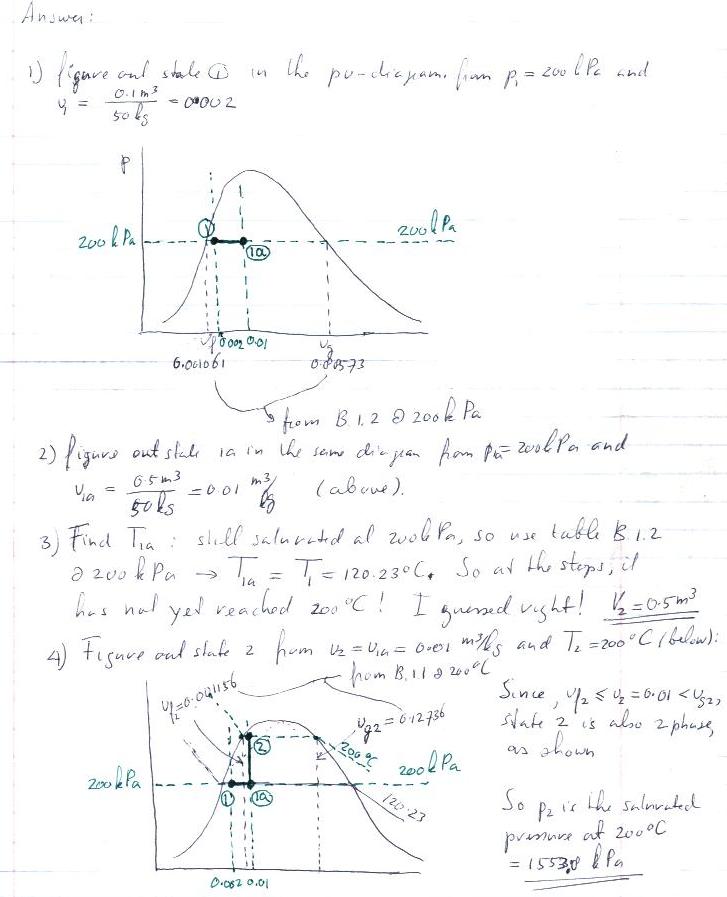 Answer:
1) figure out state ① in the pv-diagram from p₁ = 200 kPa and
v₁ = 0.1 m³ / 50 kg = 0.002
P
200 kPa
①
1a
200 kPa
vf 0.002 0.01
vg
0.001061
0.88573
from B.1.2 @ 200 k Pa
2) figure out state 1a in the same diagram from p₁ₐ = 200 kPa and
v₁ₐ = 0.5 m³ / 50 kg = 0.01 m³/kg (above).
3) Find T₁ₐ : still saturated at 200 kPa, so use table B.1.2
@ 200 kPa → T₁ₐ = T₁ = 120.23°C. So at the stops, it
has not yet reached 200 °C! I guessed right! V₂ = 0.5 m³
4) Figure out state 2 from v₂ = v₁ₐ = 0.01 m³/kg and T₂ = 200°C (below):
from B.1.1 @ 200°C
vf2 = 0.001156
vg2 = 0.12736
②
200 °C
200 kPa
①
1a
200 kPa
120.23
0.002 0.01
Since, vf2 ≤ v₂ = 0.01 < vg2,
state 2 is also 2 phase,
as shown
So p₂ is the saturated
pressure at 200°C
= 1553.8 kPa